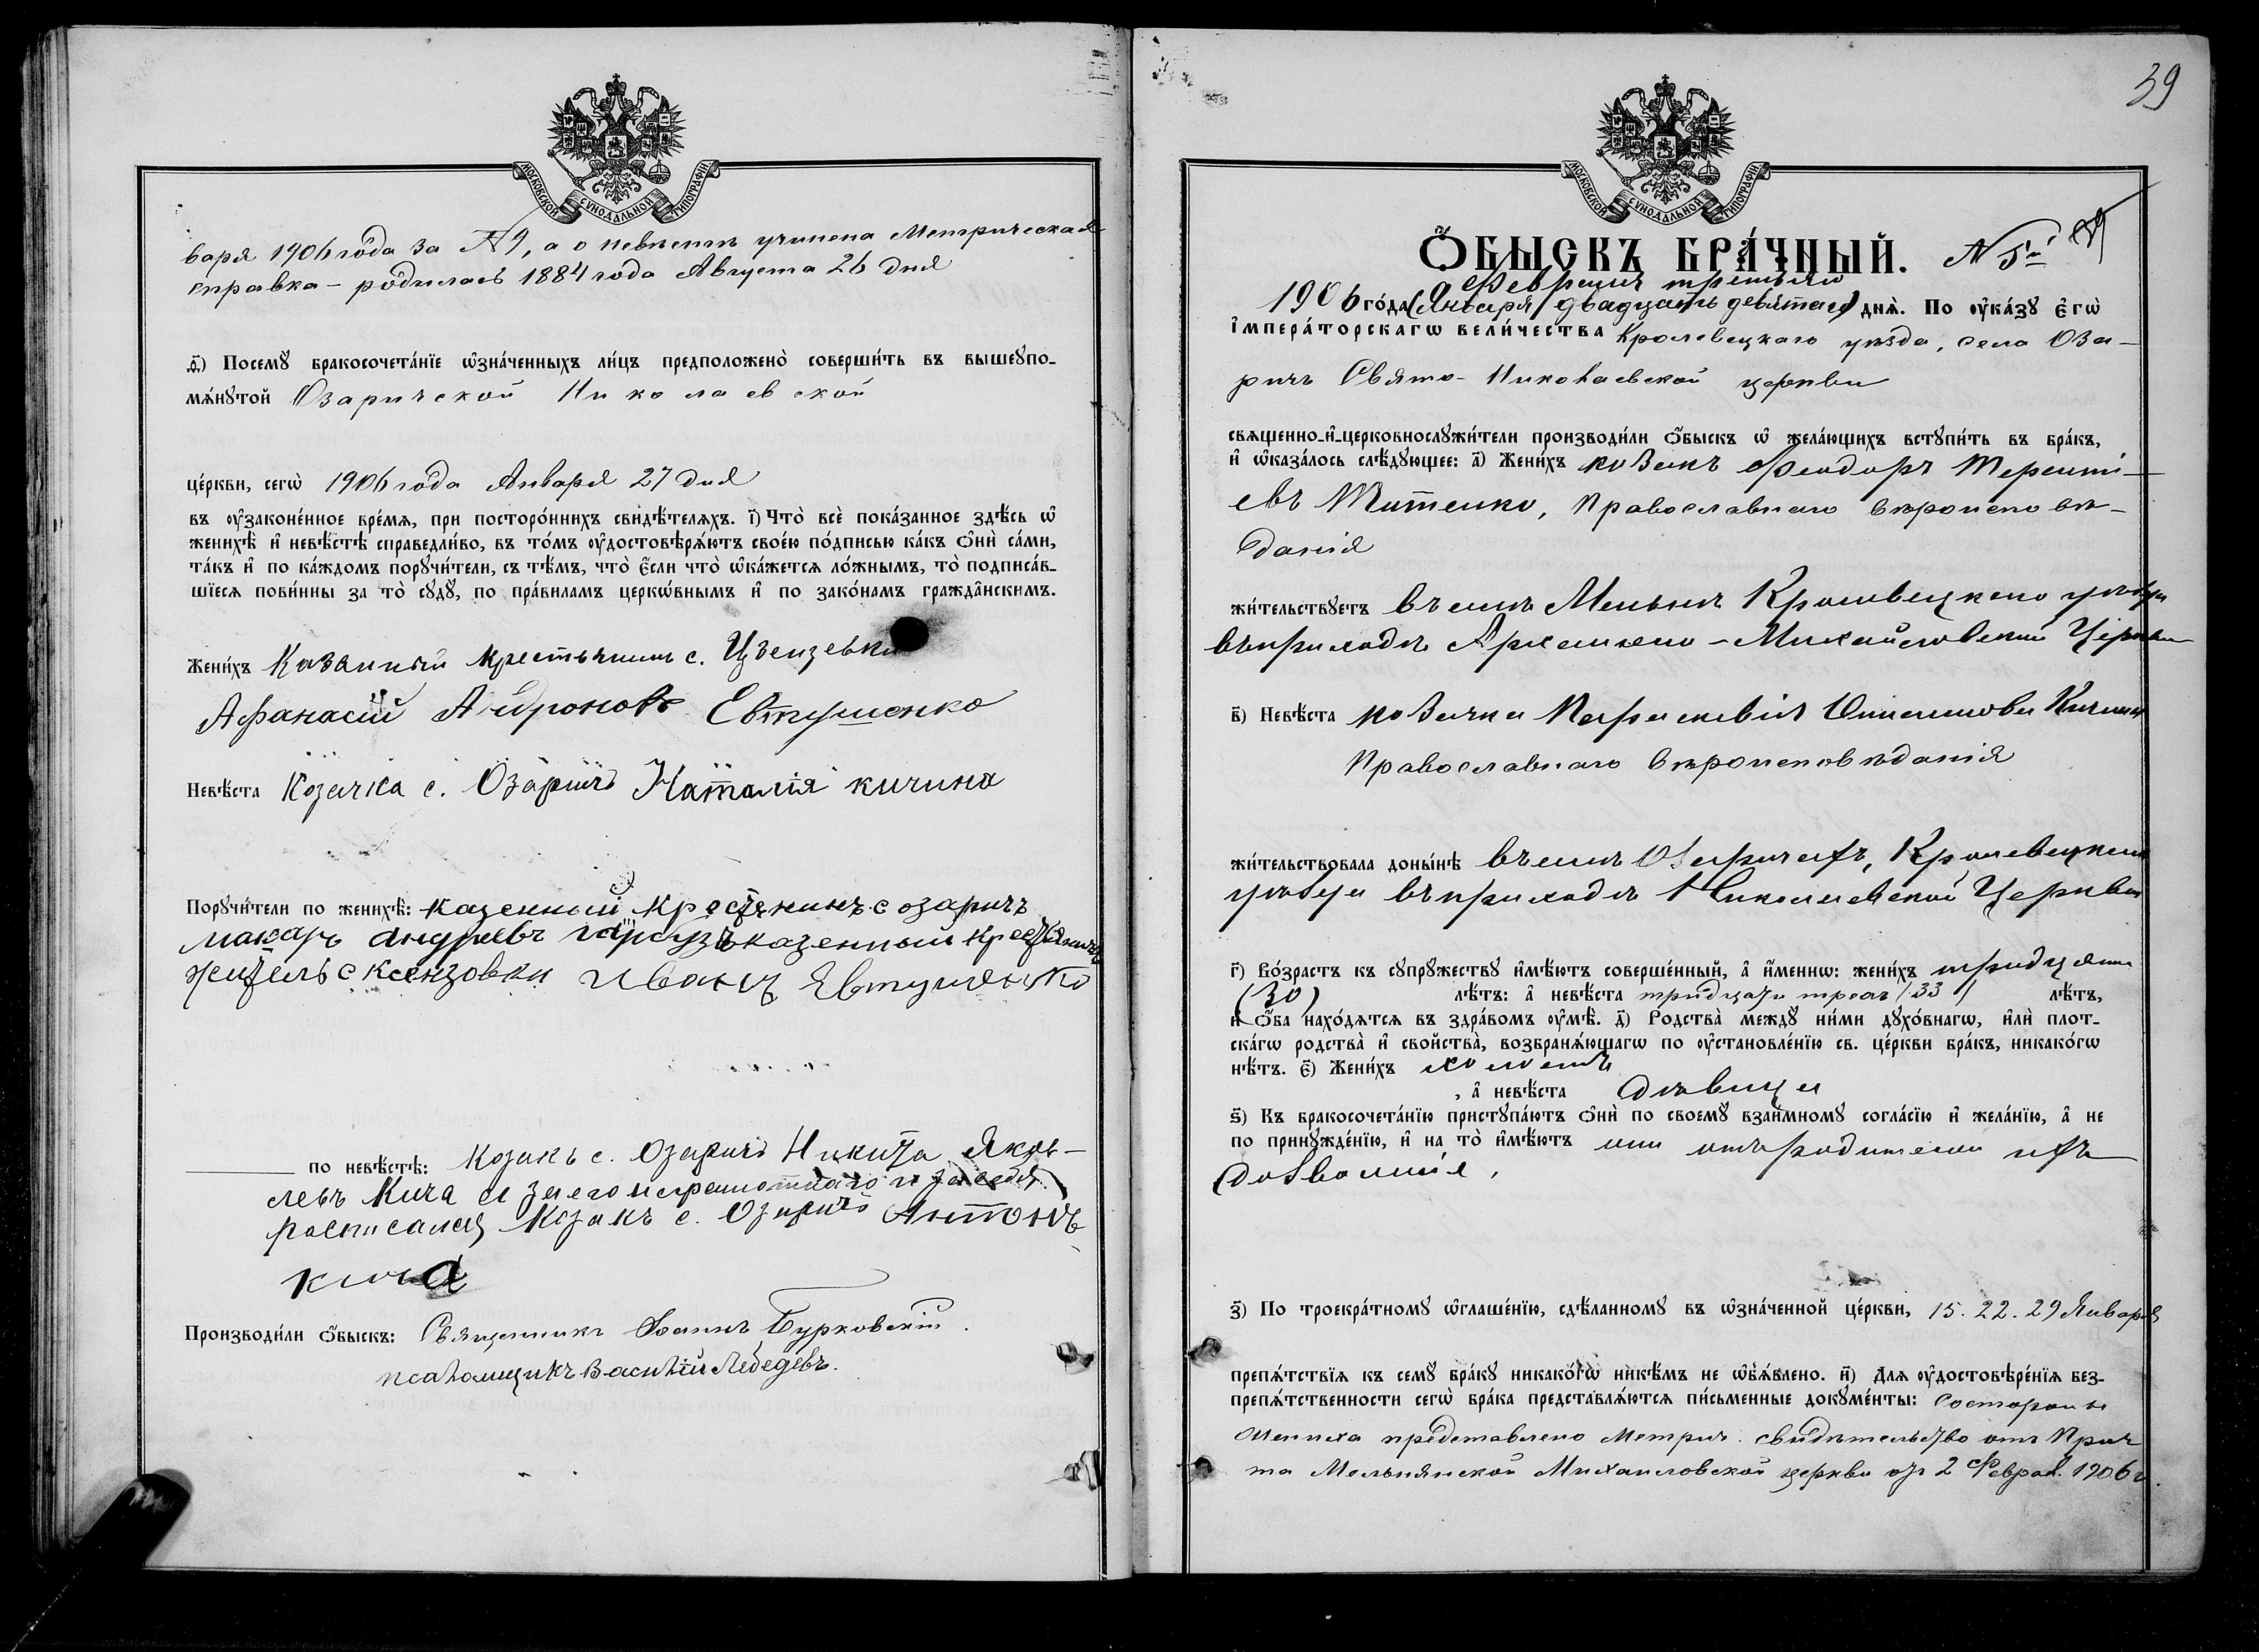 МОСКОВСКОЙ СѴНОДАЛЬНОЙ ТИПОГРАФІИ
варя 1906 года за № 9, а о невѣстѣ учинена Метрическая
справка – родилась 1884 года Августа 26 дня
д҃) Посемꙋ бракосочета́нїе ѡ҆зна́ченныхъ ли́цъ предположено̀ соверши́ть въ вышеꙋпо-
мѧ́нꙋтой Озаричской Николаевской
це́ркви, сегѡ̀ 1906 года Января 27 дня
въ ᲂу҆законе́нное вре́мѧ, при посторо́ннихъ свидѣ́телѧхъ. і҃) Что̀ всѐ пока́занное здѣ́сь ѡ҆
женихѣ̀ и҆ невѣ́стѣ справедли́во, въ то́мъ ᲂу҆достовѣрѧ́ютъ свое́ю по́дписью ка́къ ѻ҆нѝ са́ми,
та́къ и҆ по ка́ждомъ порꙋчи́тели, съ тѣ́мъ, что̀ є҆́сли что̀ ѡ҆ка́жетсѧ ло́жнымъ, то̀ подписа́в-
шїесѧ пови́нны за то̀ сꙋдꙋ̀, по пра́виламъ церкѡ́внымъ и҆ по зако́намъ гражда̂нскимъ.
Жени́хъ Казенный крестьянинъ с.
Афанасій Андроновъ Евтушенко
Невѣ́ста Козачка с. Озаричъ Наталія кичина
Порꙋчи́тели по женихѣ̀: казенный крестянинъ с озаричъ
макаръ андреевъ казенный крестянинъ
житель с ксензовки Иванъ Явтушенко
по невѣ́стѣ: Козакъ с. Озаричъ Никита Яков-
левъ Кича а за его неграмотнаго и за себя
росписался Козакъ с. Озаричъ Антонъ
кича
Производи́ли ѻ҆́быскъ: Священникъ Іоаннъ Бурковскій.
псаломщикъ Василій Лебедевъ.
39
МОСКОВСКОЙ СѴНОДАЛЬНОЙ ТИПОГРАФІИ
Ѻ҆БЫСКЪ БРА́ЧНЫЙ. № 5й
Февраля третьяго
1906 го́да (Января двадцать девятаго) днѧ̀. По ᲂу҆ка́зꙋ є҆гѡ̀
і҆мпера́торскагѡ вели́чества Кролевецкаго уѣзда, села Оза-
ричъ Свято-Николаевской церкви
свѧщенно-и҆-церковнослꙋжи́тели производи́ли ѻ҆́быскъ ѡ҆ жела́ющихъ встꙋпи́ть въ бра́къ,
и҆ ѡ҆каза́лось слѣ́дꙋющее: а҃) Жени́хъ козакъ Феодоръ Терентi-
евъ Титенко, Православнаго вѣроисповѣ-
данія
жи́тельствꙋетъ въ селѣ Мельнѣ Кролевецкаго уѣзда
въ приходѣ Архангело-Михайловской Церкви
в҃) Невѣ́ста козачка Параскевія
Православнаго вѣроисповѣданія
жи́тельствовала доны́нѣ въ селѣ Озаричахъ, Кролевецкаго
уѣзда въ приходѣ Николаевской Церкви
г҃) Во́зрастъ къ сꙋпрꙋ́жествꙋ и҆мѣ́ютъ соверше́нный, а҆ и҆́меннѡ: жени́хъ тридцати
(30) лѣ́тъ: а҆ невѣ́ста тридцати трехъ (33) лѣ́тъ,
и҆ ѻ҆́ба нахо́дѧтсѧ въ здра́вомъ ᲂу҆мѣ̀. д҃) Родства̀ междꙋ̀ ни́ми дꙋхо́внагѡ, и҆лѝ плот-
ска́гѡ родства̀ и҆ свойства̀, возбранѧ́ющагѡ по ᲂу҆становле́нїю св. це́ркви бра́къ, никако́гѡ
нѣ́тъ. є҃) Жени́хъ холостъ
, а҆ невѣ́ста дѣвица
ѕ҃) Къ бракосочета́нїю пристꙋпа́ютъ ѻ҆нѝ по своемꙋ̀ взаи́мномꙋ согла́сїю и҆ жела́нїю, а҆ не
по принꙋжде́нїю, и҆ на то̀ и҆мѣ́ютъ они отъ родителей ихъ
дозволеніе,
з҃) По троекра́тномꙋ ѡ҆глаше́нїю, сдѣ́ланномꙋ въ ѡ҆зна́ченной це́ркви, 15. 22. 29 Января
препѧ́тствїѧ къ семꙋ̀ бра́кꙋ никако́гѡ никѣ́мъ не ѡ҆б̾ѧ́влено. и҃) Длѧ ᲂу҆достовѣре́нїѧ без-
препѧ́тственности сегѡ̀ бра́ка представлѧ́ютсѧ пи́сьменные докꙋме́нты: Состороны
Жениха представлено Метрич. свидѣтельство отъ Прич
та Мельнянской Михаиловской церкви отъ 2 Феврал. 1906 г.